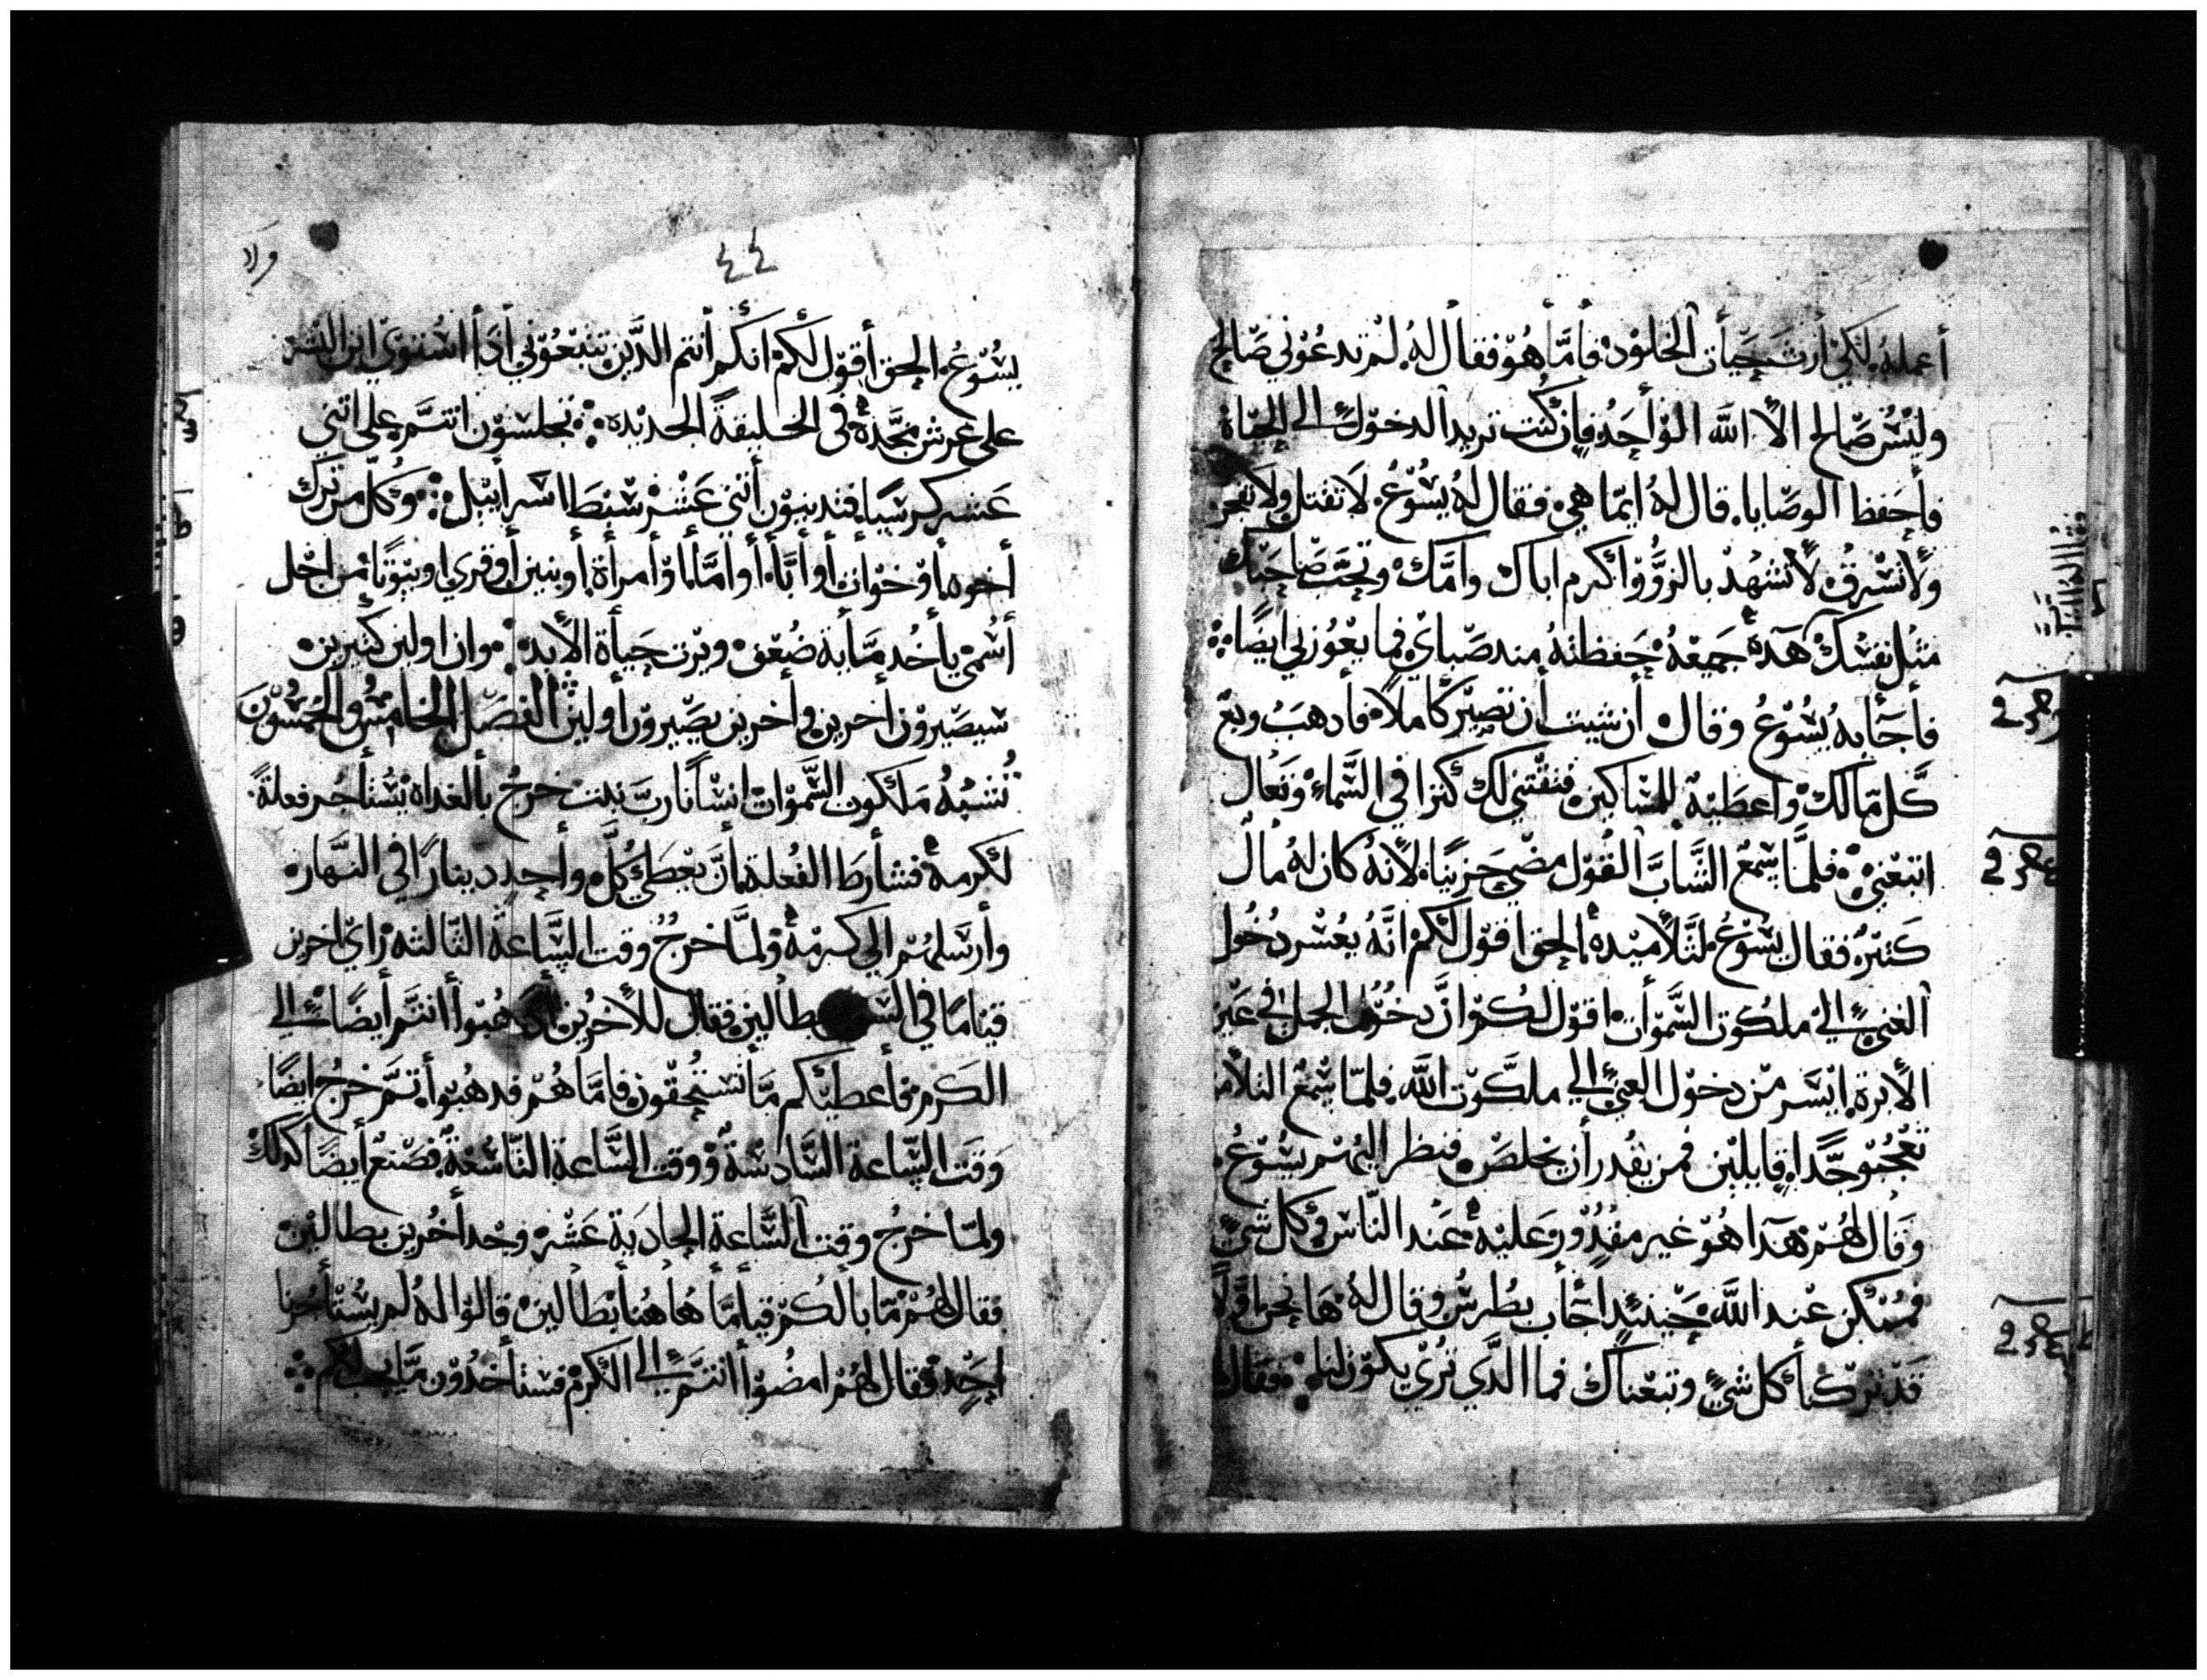 أعمله لكي أرث حيأت الخلود فأما هو فقال له لم تدعوني صالح
وليس صالح الا الله الوأحد فإن كنت تريد الدخول الى الحياة
فأحفظ الوصايا قال له ايما هي فقال له يسوع لا تقتل ولا تفجر
ولا تسرق لا تشهد بالزور وأكرم اباك وامك وتحب صاحبك
مثل نفسك هده جميعه حفظته مند صباي فما يعوزني ايضا
فأجأبه يسوع وقال أن شيت أن تصير كاملا فأدهب وبع
كل مالك وأعطيه للمساكين فتقتني لك كنزا في السماء وتعال
اتبعني فلما سمع الشاب القول مضي حزينا لأنه كان له مال
كتير فقال يسوع لتلأميده الحق اقول لكم انه يعسر دخول
الغني الى ملكوت السموأت اقول لكم ان دخول الجمل في عين
الأبرة ايسر من دخول الغني الى ملكوت الله فلما سمع التلام
تعجبو جدا قايلين فمن يقدر أن يخلص فنظر اليهم يسوع
وقال لهم هدا هو غير مقدور عليه عند الناس كل شي
فممكن عند الله حينيد اجاب بطرس وقال له ها نحن
قد تركنأ كل شي وتبعناك فما الدي تري يكون لنا فقال
٤٤
يسوع الحق أقول لكم انكم أنتم الدين تبعوني أدأ استوي ابن البشر
على عرش مجده في الخليقة الجديده تجلسون انتم على اتني
عشر كرسيا فتدينون أتني عشر سبط اسرأييل وكل من ترك
أخوه أو خوات أو أبأ أو اما أو أمرأة أو بنين أو قري او بيوتا من اجل
أسمي يأخد مأية ضعف ويرت حيأة الأبد وان اولين كتيرين
سيصيرون أخرين وأخرين يصيرون أولين الفصل الخامس والخمسون
تشبه ملكوت السموات انسانا رب بيت خرج بألغداه يستأجر فعلة
لكرمه فشأرط الفعلة أن يعطي كل وأحد دينارا في النهار
وأرسلهم الي كرمه ولما خرج وقت الساعة التالته رأي اخرين
قياما في بطالين فقال للأخرين أدهبوا أنتم أيضا الى
الكرم فأعطيكم ما تستحقون فاما هم فدهبوا تم خرج ايضا
وقت الساعة السادسة ووقت الساعة التاسعة فصنع أيضا كدلك
ولما خرج وقت الساعة الحادية عشر وجد أخرين بطالين
فقال لهم ما بالكم قيأما هاهنا بطالين قالوا له لم يستأجرنا
احد فقال لهم امضوا أنتم الى الكرم فستأخدون ما يجب لكم